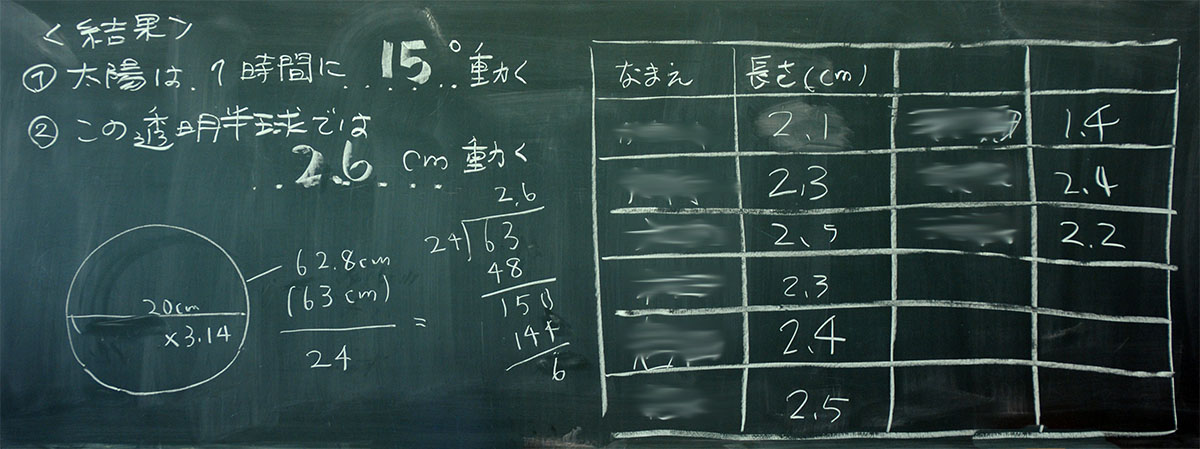 <結果>
① 太陽は、1時間に 15° 動く
② この透明半球では
2.6 cm 動く
20cm
×3.14
62.8cm
(63cm)
24
=
2.6
24 63
48
150
144
6
なまえ 長さ(cm)
2.1 1.4
2.3 2.4
2.5 2.2
2.3
2.4
2.5